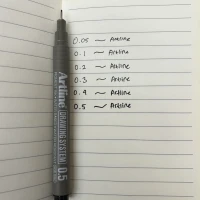 0.05 ~ Artline
0.1 ~ Artline
0.2 ~ Artline
0.3 ~ Artline
0.4 ~ Artline
0.5 ~ Artline
Artline DRAWING SYSTEM 0.5